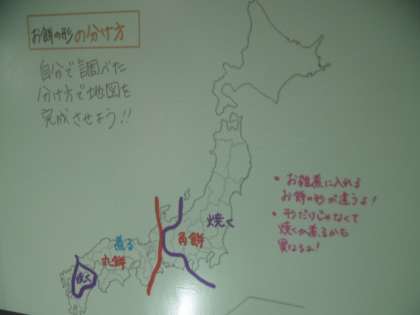 お餅の形の分け方
自分で調べた
分け方で地図を
完成させよう!!
・お雑煮に入れる
お餅の形が違うよ!
・形だけじゃなくて
焼くか煮るかも
焼く
角餅
煮る
丸餅
焼く